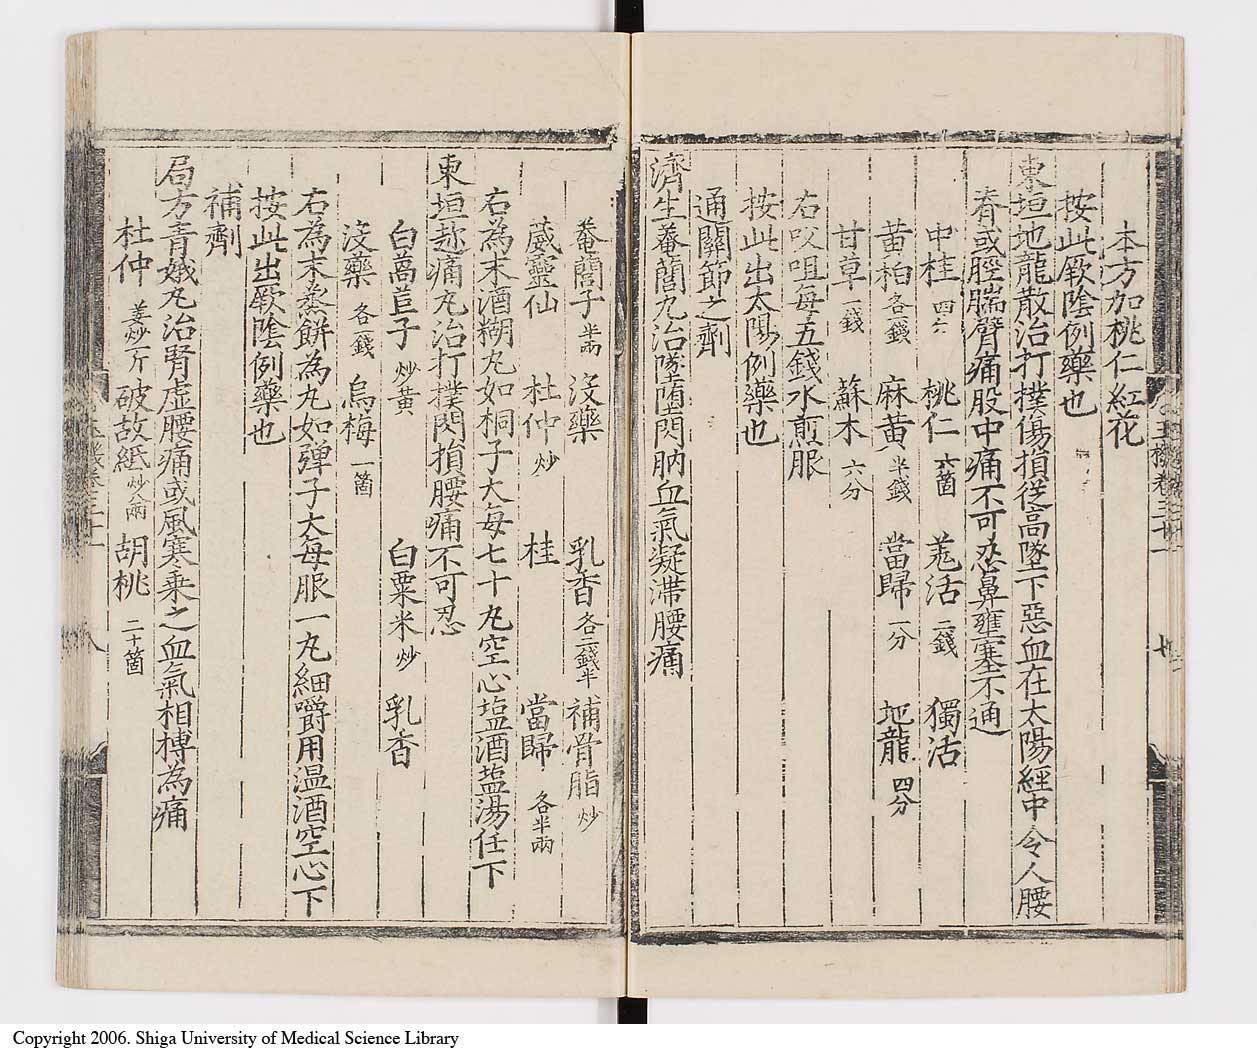 本方加桃仁紅花
按此厥陰例藥也
東垣地龍散治打撲傷損從高墜下惡血在太陽經中令人腰
脊或脛腨臂痛股中痛不可忍鼻壅塞不通
中桂 四分 桃仁 六箇 羌活 二錢 獨活
黄栢 各一錢 麻黄 半錢 當歸 一分 地龍 四分
甘草 一錢 蘇木 六分
右㕮咀每五錢水煎服
按此出太陽例藥也
通關節之劑
濟生菴䕡丸治墜堕閃肭血氣凝滯腰痛
菴䕡子 半兩 沒藥 乳香 各二錢半 補骨脂 炒
葳靈仙 杜仲 炒 桂 當歸 各半兩
右為末酒糊丸如桐子大每七十丸空心塩酒塩湯任下
東垣趂痛丸治打撲閃損腰痛不可忍
白萵苣子 炒黄 白粟米 炒 乳香
沒藥 各一錢 烏梅 一箇
右為末蒸餅為丸如弹子大每服一丸細嚼用温酒空心下
按此出厥陰例藥也
補劑
局方青娥丸治腎虚腰痛或風寒乘之血氣相搏為痛
杜仲 姜炒一斤 破故紙 炒八兩 胡桃 二十箇
八
Copyright 2006. Shiga University of Medical Science Library